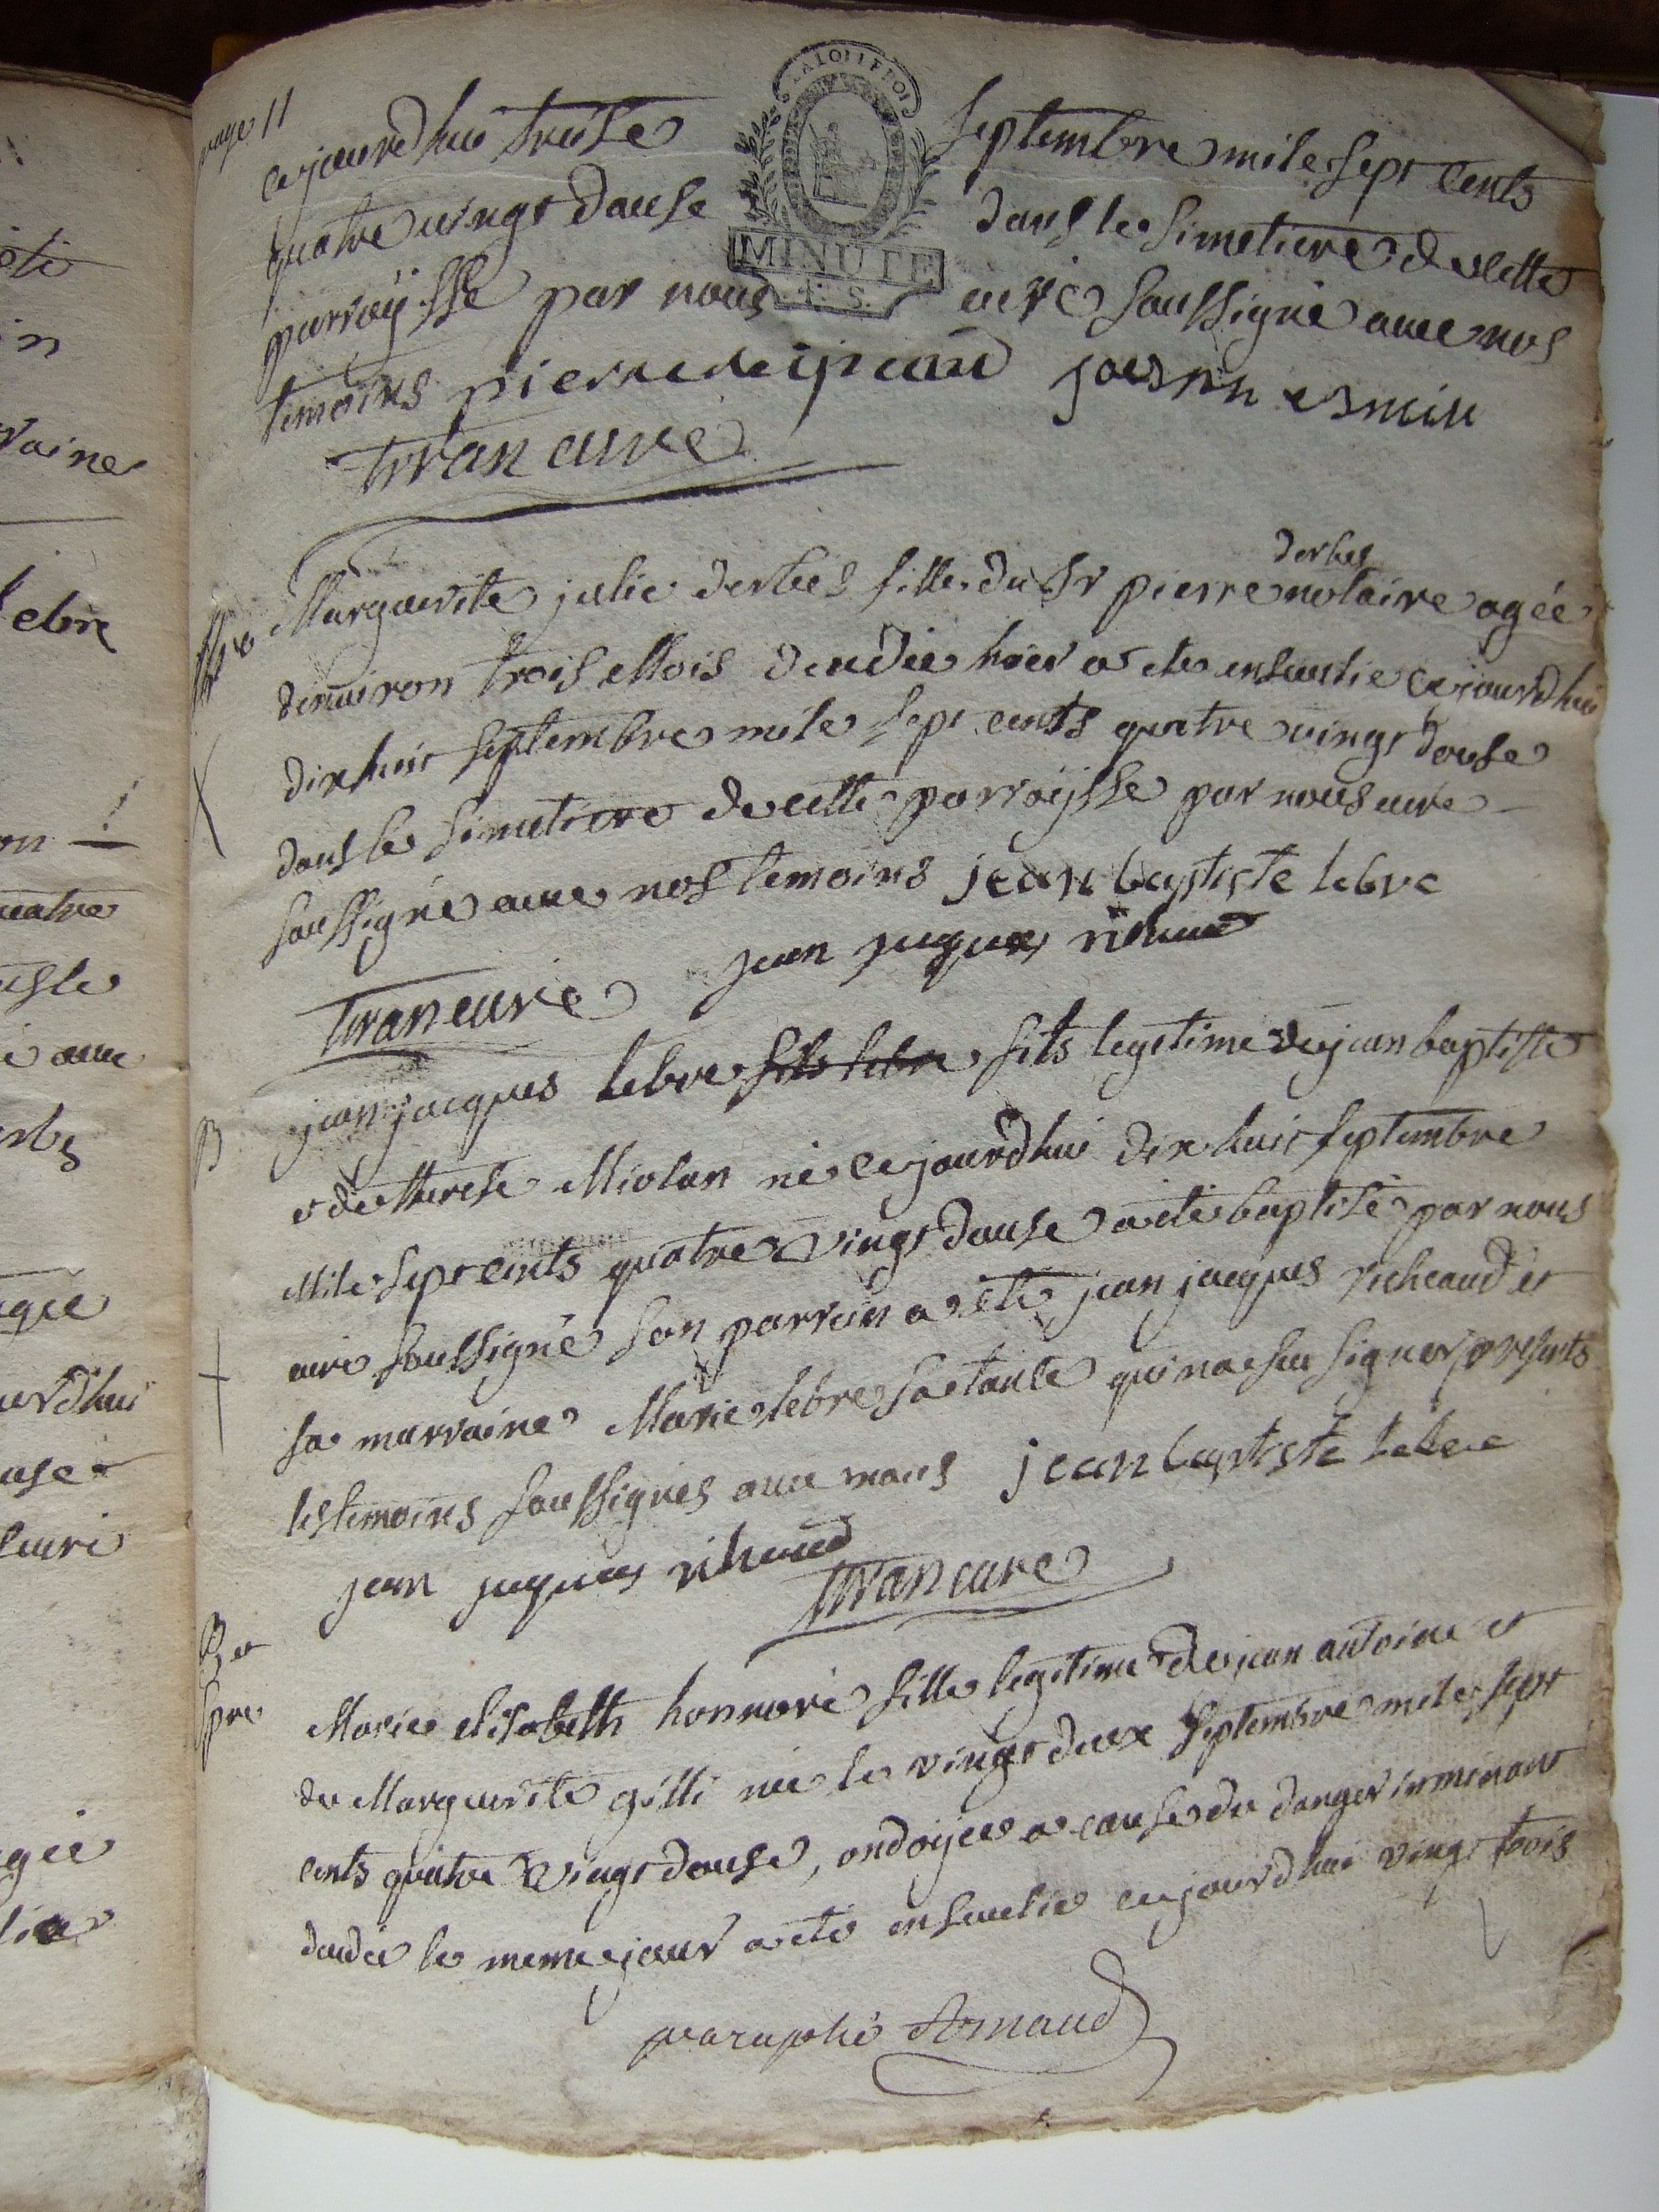 page 11
LA LOI LE ROI
MINUTE
T. S.
ce jourdhui treise septembre mile sept cents
quatre vingt douse dans le simetiere de cette
parroÿsse par nous curé soussigné avec nos
temoins pierre jeaud
tiran curé
derbes
Marguerite julie derbes fille du Sr pierre notaire agée
denuiron trois Mois decedée hier a été enseuelie ce jourdhui
dix huit septembre mile sept cents quatre vingt douse
dans le simetiere de cette parroÿsse par nous curé
soussigné avec nos temoins jean baptiste lebre
jean juques rihaud
tiran curé
B
jean jacques lebre fils lebre fils legitime de jean baptiste
et de therese Miolan né ce jourdhui dix huit septembre
Mile sept cents quatre vingt douse a été baptisé par nous
curé soussigné son parrain a été jean jacques richeaud et
sa marraine Marie lebre sa tante qui na seu signer presents
les temoins soussignés avec nous jean baptiste lebre
jean juques rihaud
tiran curé
B et
spre
Marie elisabeth honnoré fille legitime de jean antoine et
de Marguerite gilli née le vingt deux septembre mile sept
cents quatre vingt douse, ondoÿee a cause du danger imminant
decedée le meme jour a été enseuelie ce jourdhui vingt trois
paraphé Arnaud